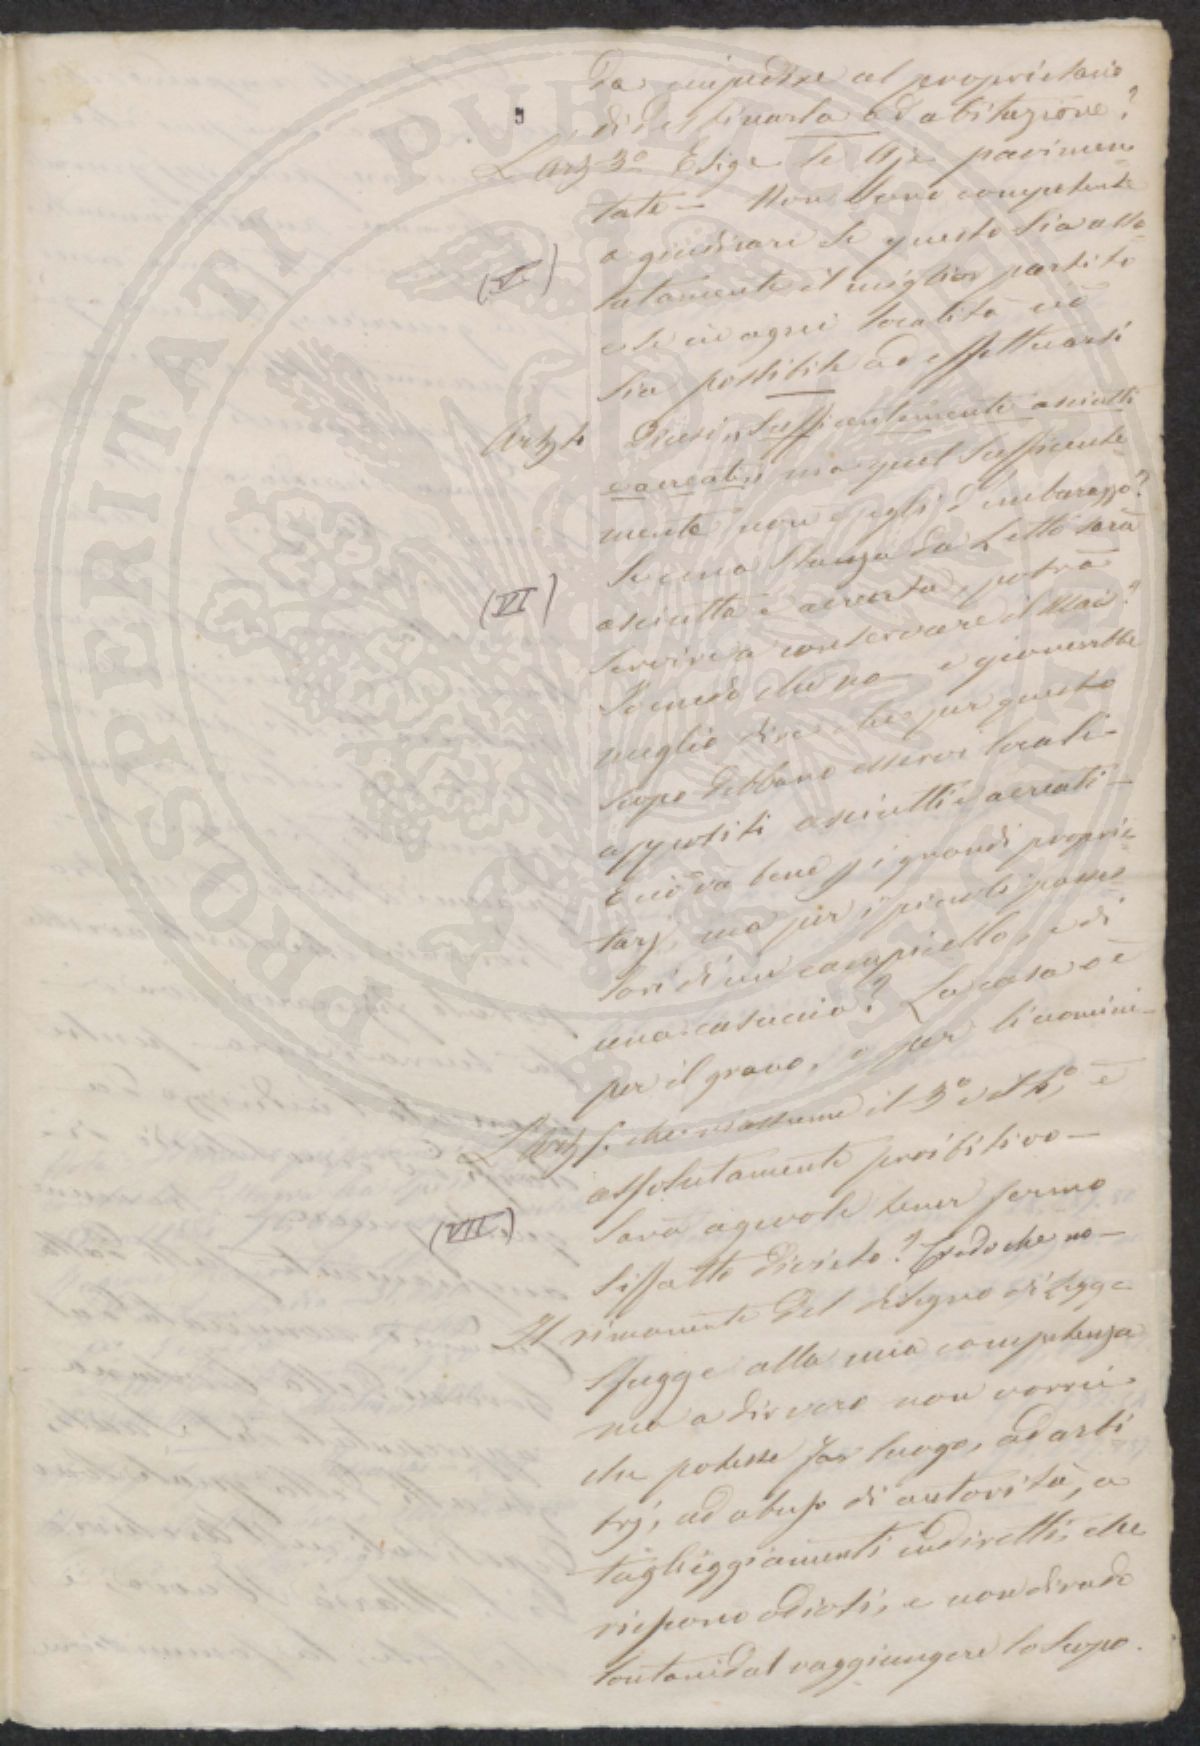 da impedire al proprietario
di destinarla ad abitazione?
L'Art 3º Esige le Aje pavimen-
tate — Non sono competente
a giudicare se questo sia asso-
(V.)
lutamente il miglior partito
e se in ogni località ciò
sia possibile ad effettuarsi
Art 4 Dicesi „ sufficientemente asciutti
e aereati„ ma quel sufficiente-
mente non è egli d'imbarazzo?
Se una stanza da Letto sarà
(VI)
asciutta e aereata, potrà
servire a conservare il Mais?
Io credo che no — e gioverebbe
meglio dire che per questo
scopo debbano esservi locali
appositi asciutti e aereati —
E ciò va bene p i grandi proprie-
tarj, ma per i piccoli posses-
sori di un campicello, e di
una casuccia? La casa o è
per il grano, o per li uomini —
L'Art 5. che riassume il 3º e il 4º, è
assolutamente proibitivo —
(VII.)
Sarà agevole tener fermo
siffatto divieto? Credo che no —
Il rimanente del disegno di Legge
sfugge alla mia competenza
ma a dir vero non vorrei
che potesse far luogo, ad arbi
trj, ad abuso di autorità, a
taglieggiamenti indiretti, che
riescono odiosi, e non di rado
lontani dal raggiungere lo scopo.
PROSPERITATI PVBLICAE